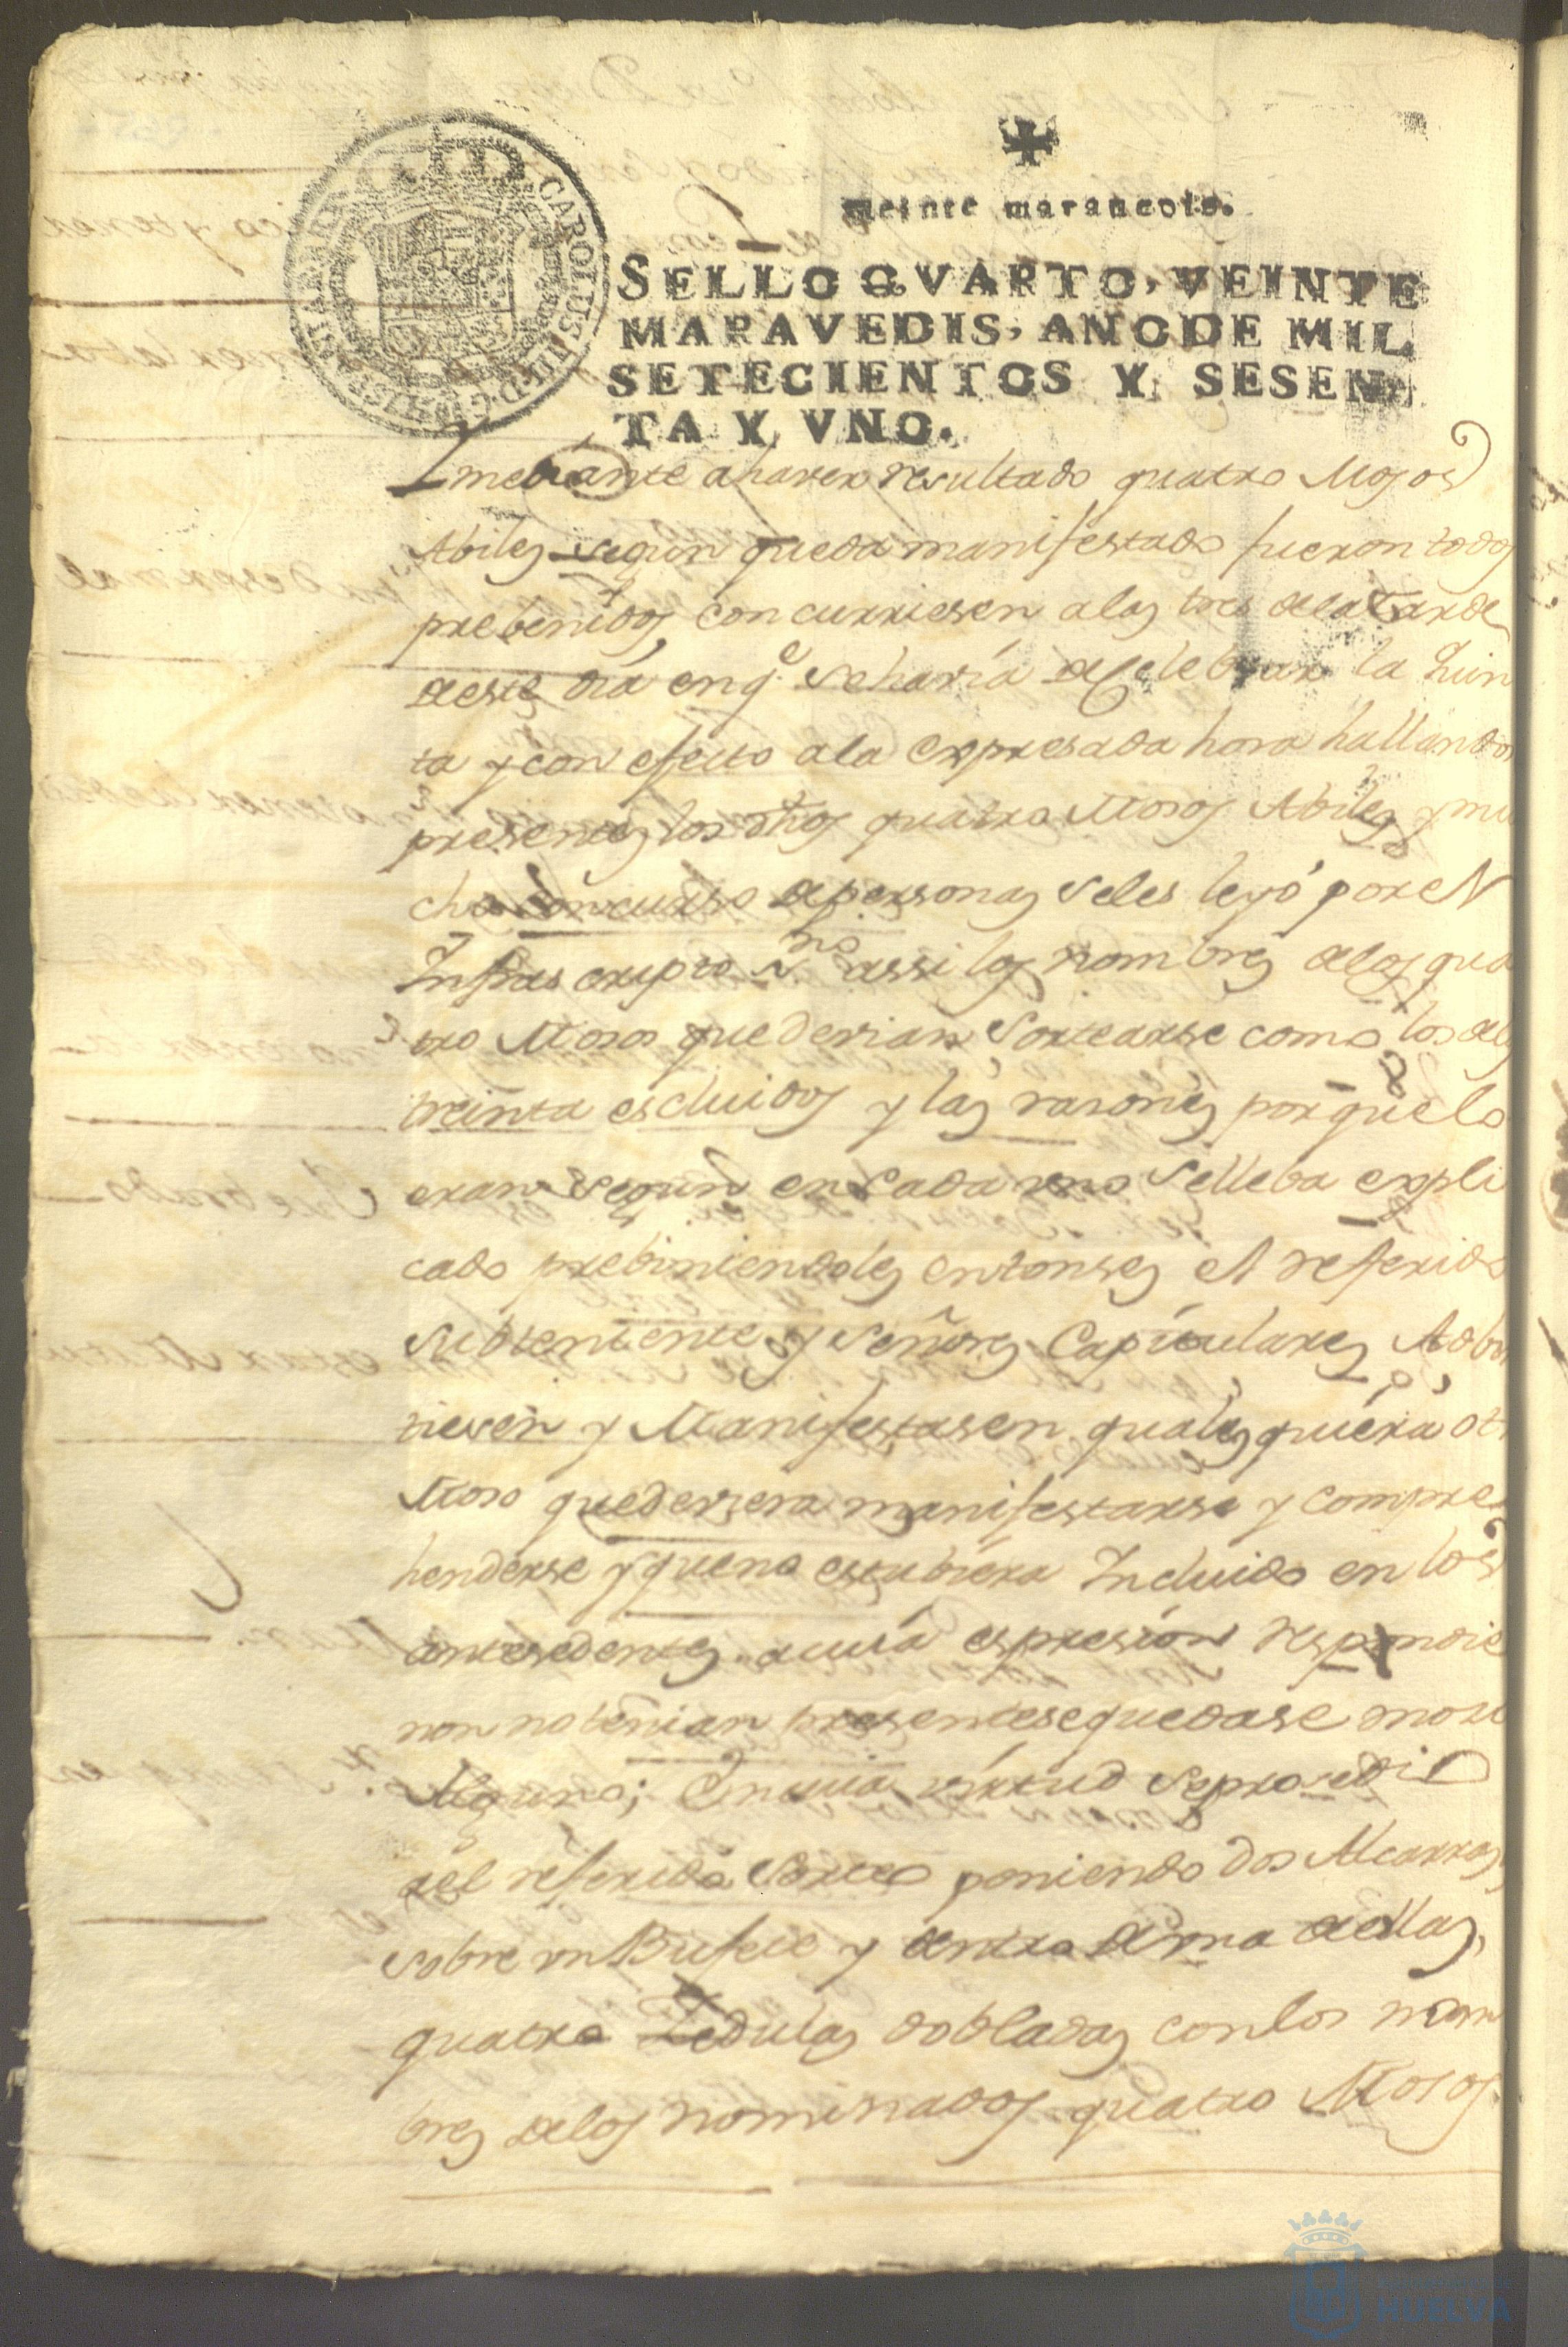 CAROLUS III D G HISPANIAR
Veinte maravedis.
SELLO QVARTO, VEINTE
MARAVEDIS, AÑO DE MIL
SETECIENTOS Y SESEN-
TA Y VNO.
Imediante a haver resultado quatro Mosos
Abiles segun queda manifestado fueron todos
prebenidos concurriesen a las tres de la tarde
deste dia en q.e se haria de Celebrar la Jun
ta y con efecto a la expresada hora hallandos
presentes los dhos quatro Mosos Abiles y mu
cho concurso de personas se les leyó por el
Infrascripto ss.no assi los nombres de los qua
tro Mosos que devian Sortearse como los de los
treinta escluidos y las rasones porque lo
eran segun en cada uno se lleba expli
cado prebiniendoles entonses el referido
subteniente y Señores Capitulares Adbir
tiesen y Manifestasen quales quiera otr
Moso que deviera manifestarse y compre
henderse y que no estubiera Incluido en los
antesedentes a cuia espresion respondie
ron no tenian presente se quedase moso
Alguno; En cuia virtud se prosedio
del referido Sorteo poniendo dos Alcarras
sobre un Bufete y dentro de una de ellas,
quatro Zedulas dobladas con los nom
bres de los nominados quatro Mosos.
HUELVA